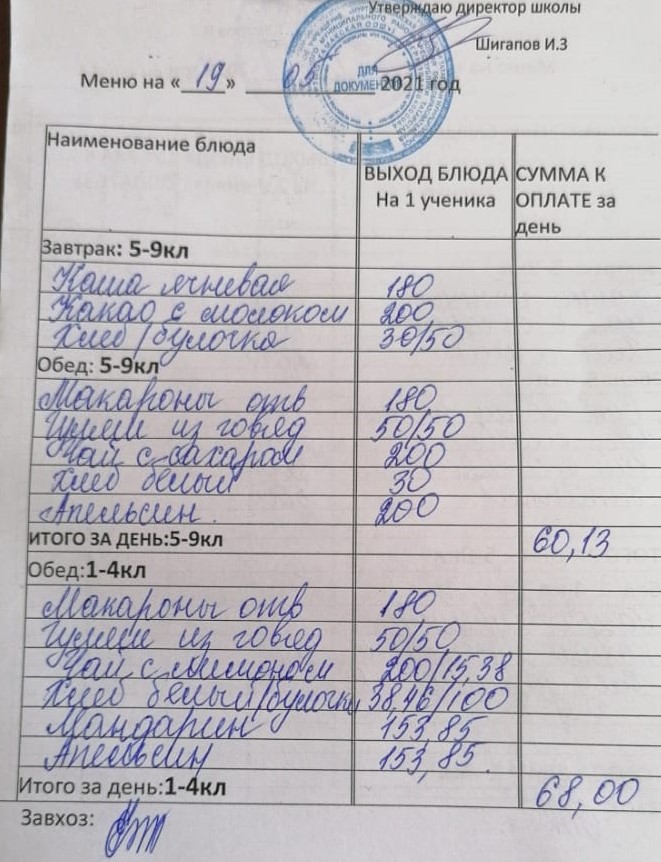 Утверждаю директор школы
Шигапов И.З
Меню на «19» 2021 год
ДЛЯ
ДОКУМЕНТОВ
Наименование блюда
ВЫХОД БЛЮДА
На 1 ученика
СУММА К
ОПЛАТЕ за
день
Завтрак: 5-9кл
Каша ячневая 180
Какао с молоком 200
Хлеб/булочка 30/50
Обед: 5-9кл
Макароны отв 180
Гуляш из говяд 50/50
Чай с сахаром 200
Хлеб белый 30
Апельсин 200
ИТОГО ЗА ДЕНЬ:5-9кл 60,13
Обед:1-4кл
Макароны отв 180
Гуляш из говяд 50/50
Чай с лимоном 200/15,38
Хлеб белый/булочка 38,46/100
Мандарин 153,85
Апельсин 153,85
Итого за день:1-4кл 68,00
Завхоз: